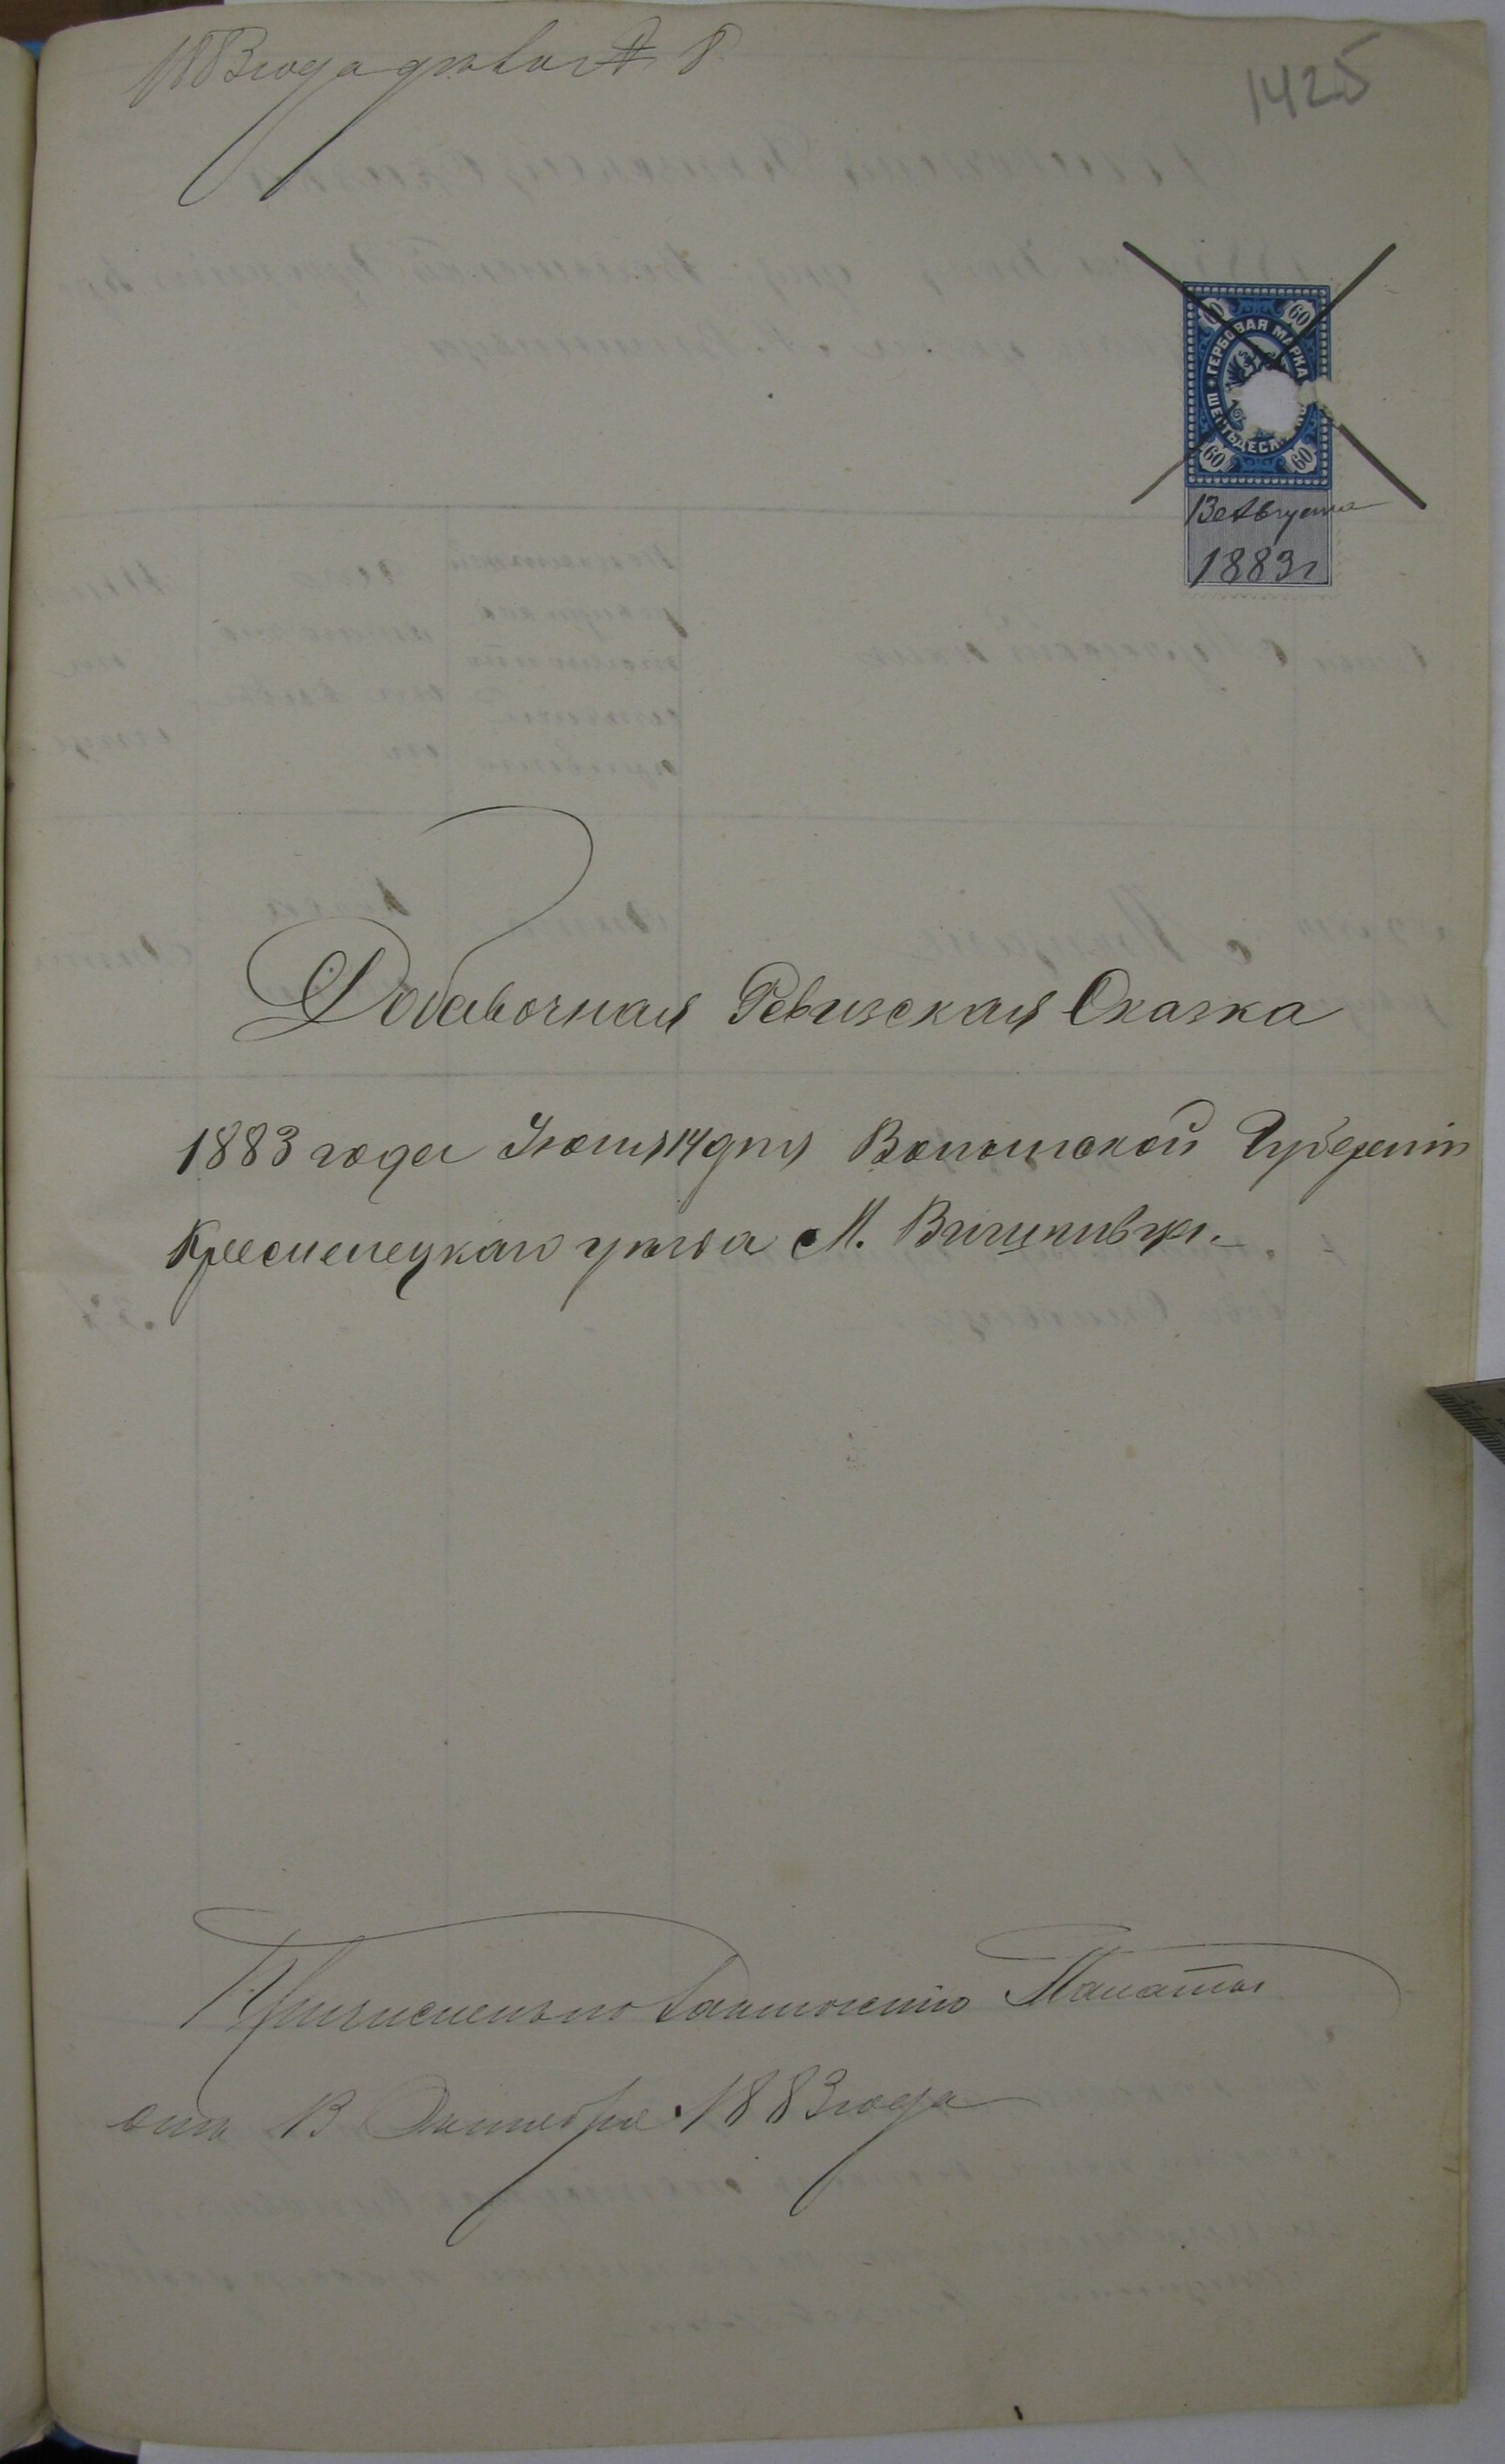 1883 года дѣло № 8.
1425
60 60
ГЕРБОВАЯ МАРКА
ШЕСТЬДЕСЯ
60 60
13 Августа
1883 г
Добавочная Ревизская Сказка
1883 года Іюля 14 дня Волынской Губерніи
Кременецкаго уѣзда М. Вишнивца.
Причислены по Заключенію Палаты
отъ 13 Октября 1883 года